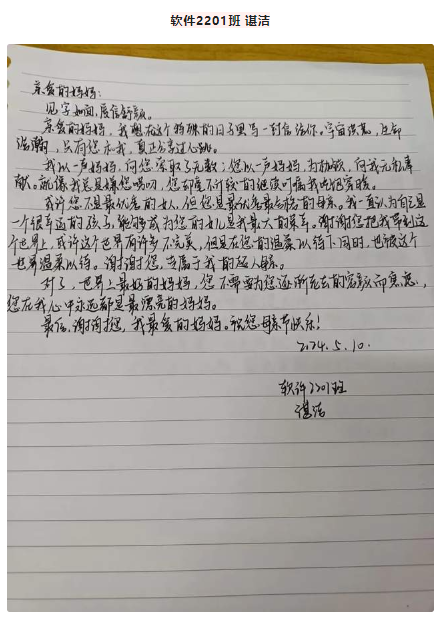 软件2201班 谌洁
亲爱的妈妈:
见字如面,展信舒颜。
亲爱的妈妈,我想在这个特殊的日子里写一封信给你。宇宙洪荒,
浩瀚,只有您和我,真正分享过心跳。
我以一声妈妈,向您索取了无数;您以一声妈妈,为 向我无私奉
献。就像我总是嫌您唠叨,您却毫不计较的继续叮嘱我
或许您不是最优秀的女人,但您是最优秀最合格的母亲。我一直认为自己是
一个很幸运的孩子,能够成为您的女儿是我最大的荣幸。谢谢您把我带到这
个世界上,或许这个世界有许多不完美,但是在您的温柔以待下同时,也被这个
世界温柔以待。谢谢您,专属于我的超人母亲。
对了,世界上最好的妈妈,您不需要为您逐渐老去的容颜而焦虑,
您在我心中永远都是最漂亮的妈妈。
最后,谢谢您,我最爱的妈妈。祝您母亲节快乐!
2024.5.10.
软件2201班
谌洁